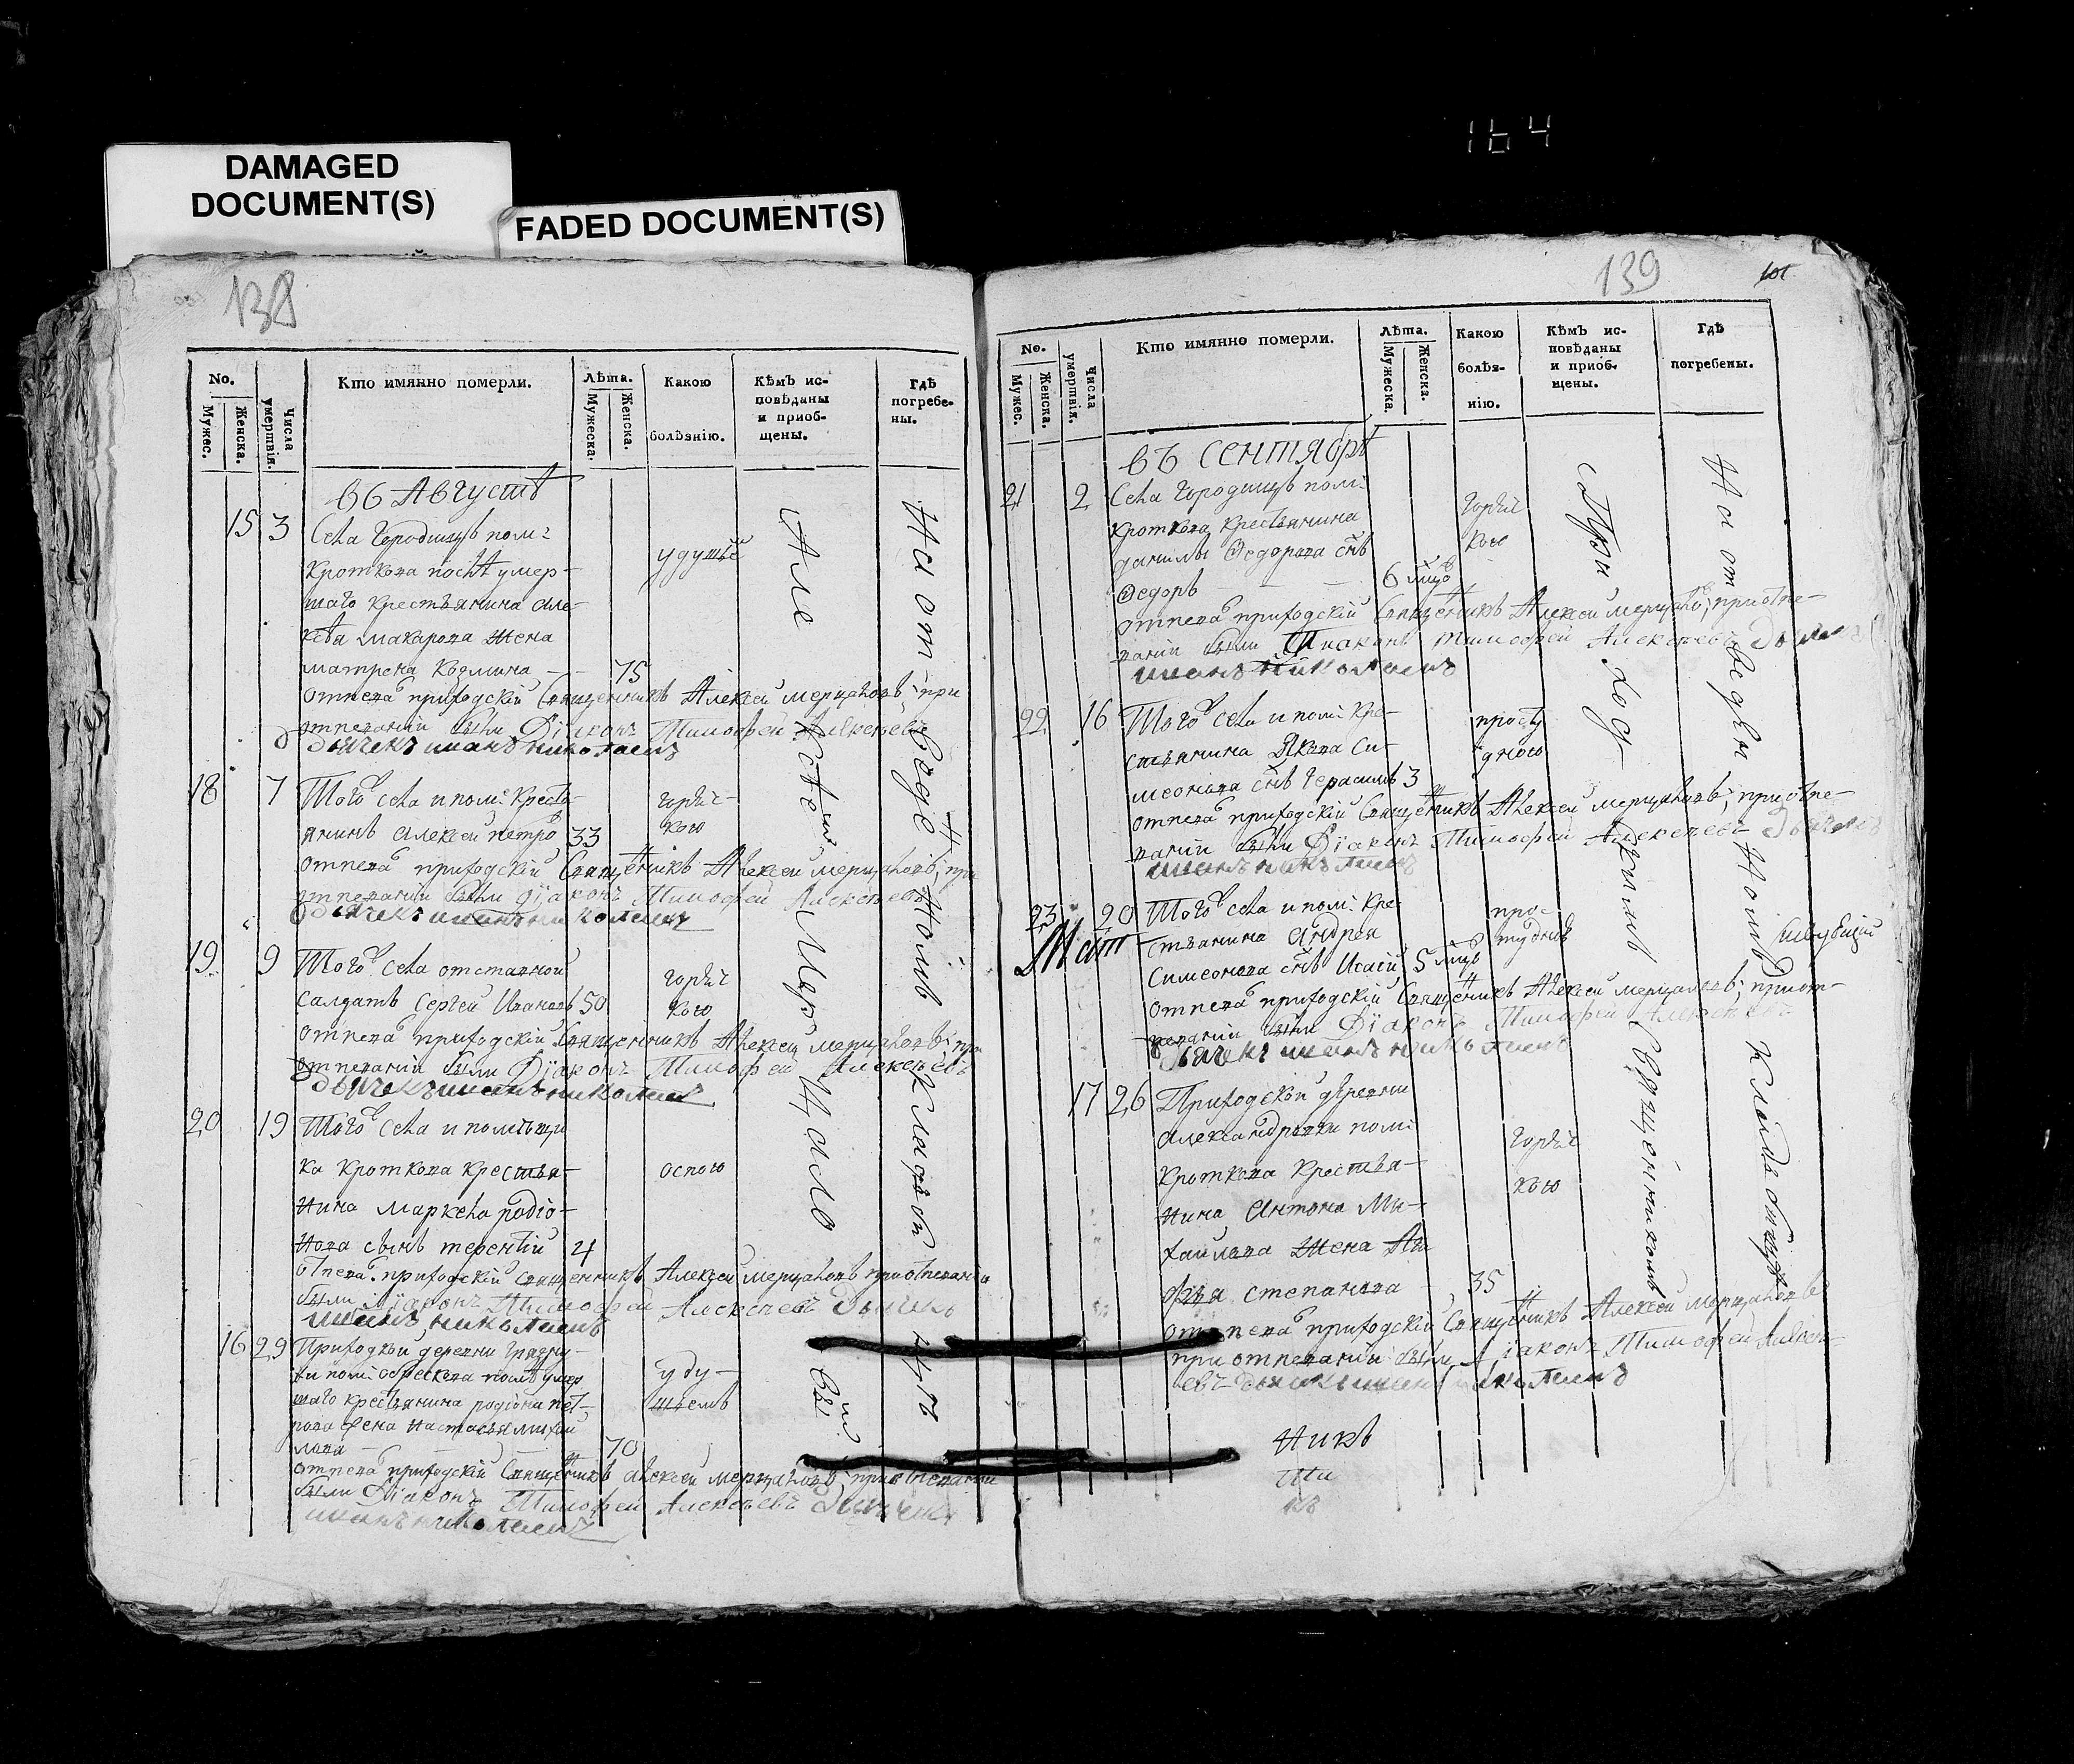 164
DAMAGED
DOCUMENT(S)
FADED DOCUMENT(S)
138
No.
Мужес.
Женска.
Числа умертвія.
Кто имянно померли.
Лѣта.
Мужеска.
Женска.
Какою
болѣзнію.
Кѣмъ ис-
повѣданы
и приоб-
щены.
Гдѣ
погребе-
ны.
въ Августѣ
15 3 Села Городищъ пом:
Кроткова послѣ умер- удушьѣ
шаго крестьянина Але-
ксѣя макарова жена
матрена Козмина — 75
отпевал приходскій Священникъ Алексей мерцаловъ; при
отпевании были Дїаконъ Тимофей Алексеевъ
дьячекъ иванъ николаевъ
18 7 Того села и пом: Кресть- горяч-
янинъ Алексей петро 33 кою
отпевал приходскій Священникъ Алексей мерцаловъ; при
отпевании были дїаконъ Тимофей Алексеевъ
дьячекъ иванъ николаевъ
19 9 Того села отставной горяч
салдатъ Сергей Ивановъ 50 кою
отпевал приходскій Священникъ Алексей мерцаловъ; при
отпевании были Дїаконъ Тимофей Алексеевъ
дьячекъ иванъ николаевъ
20 19 Того села и помѣщи
ка Кроткова Крестья- оспою
нина Маркела родіо-
нова сынъ терентій 4
отпевал приходскій священникъ Алексей мерцаловъ при отпевании
были дїаконъ Тимофей Алексеевъ дьячекъ
иванъ николаевъ
16 29 Приходкой деревни
пом: после умер уду-
шаго крестьянина родіона пет- шьемъ
рова жена настасья михай
лова — 70
отпевал приходскій Священникъ алексей мерцаловъ; при отпевании
были Дїаконъ Тимофей Алексеевъ Дьячекъ
иванъ николаевъ
Алексеем Мерцало
вы.
На отводной кладбой
139
101
No.
Мужес.
Женска.
Числа умертвія.
Кто имянно померли.
Лѣта.
Мужеска.
Женска.
Какою
болѣз-
нію.
Кѣмъ ис-
повѣданы
и приоб-
щены.
Гдѣ
погребены.
въ Сентябрѣ
21 2 Села Городищъ пом:
Кроткова крестьянина горяч
данилы Федорова снъ кою
Федоръ — 6 мцъ
отпевал приходскій Священникъ Алексей мерцаловъ; при отпе-
вании были Дїаконъ тимофей Алексеевъ дьячекъ
иванъ николаевъ
22 16 Того села и пом: Кре- просту
стьянина Якова Си- дною
меонова снъ Герасимъ 3
отпевал приходскій Священникъ Алексей мерцаловъ; при отпе-
вании были Дїаконъ Тимофей Алексеевъ дьячекъ
иванъ николаевъ
23 20 Того села и пом: Кре- прос-
стьянина Андрея тудною
Симеонова снъ Исаій 5 мцъ
отпевал приходскій Священникъ Алексей мерцаловъ; при от-
певании были Дїаконъ Тимофей Алексеевъ
дьячекъ иванъ николаевъ
17 26 Приходской деревни
александровки пом: горяч
Кроткова Крестья- кою
нина Антона Ми-
хайлова жена
степанова 35
отпевал приходскій Священникъ Алексей Мерцаловъ
при отпевании были дїаконъ Тимофей Алексе-
евъ дьячекъ иванъ николаевъ
Приходскимъ Священникомъ
На отведенномъ кладбищѣ
никъ